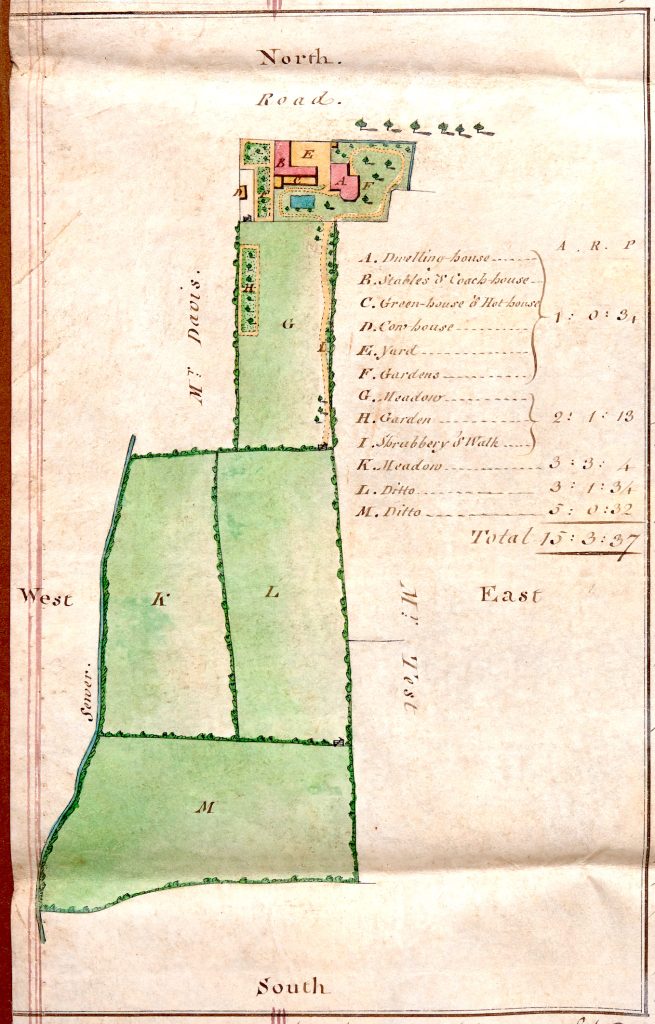 North.
Road.
B
E
C
A
F
D
H
G
I
Mr. Davis.
A. R. P
A. Dwelling-house
B. Stables & Coach-house
C. Green-house & Hot-house
D. Cow house
E. Yard
F. Gardens
1: 0: 34
G. Meadow
H. Garden
I. Shrubbery & Walk
2: 1: 13
K. Meadow 3: 3: 4
L. Ditto 3: 1: 34
M. Ditto 5: 0: 32
Total 15: 3: 37
West
K
L
East
Mr. Test
Sewer.
M
South